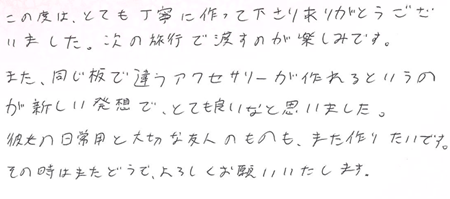 この度は、とても丁寧に作って下さりありがとうござ
いました。次の旅行で渡すのが楽しみです。
また、同じ板で違うアクセサリーが作れるというの
が新しい発想で、とても良いなと思いました。
彼女の日常用と大切な友人のものも、また作りたいです。
その時はまたどうぞ、よろしくお願いいたします。